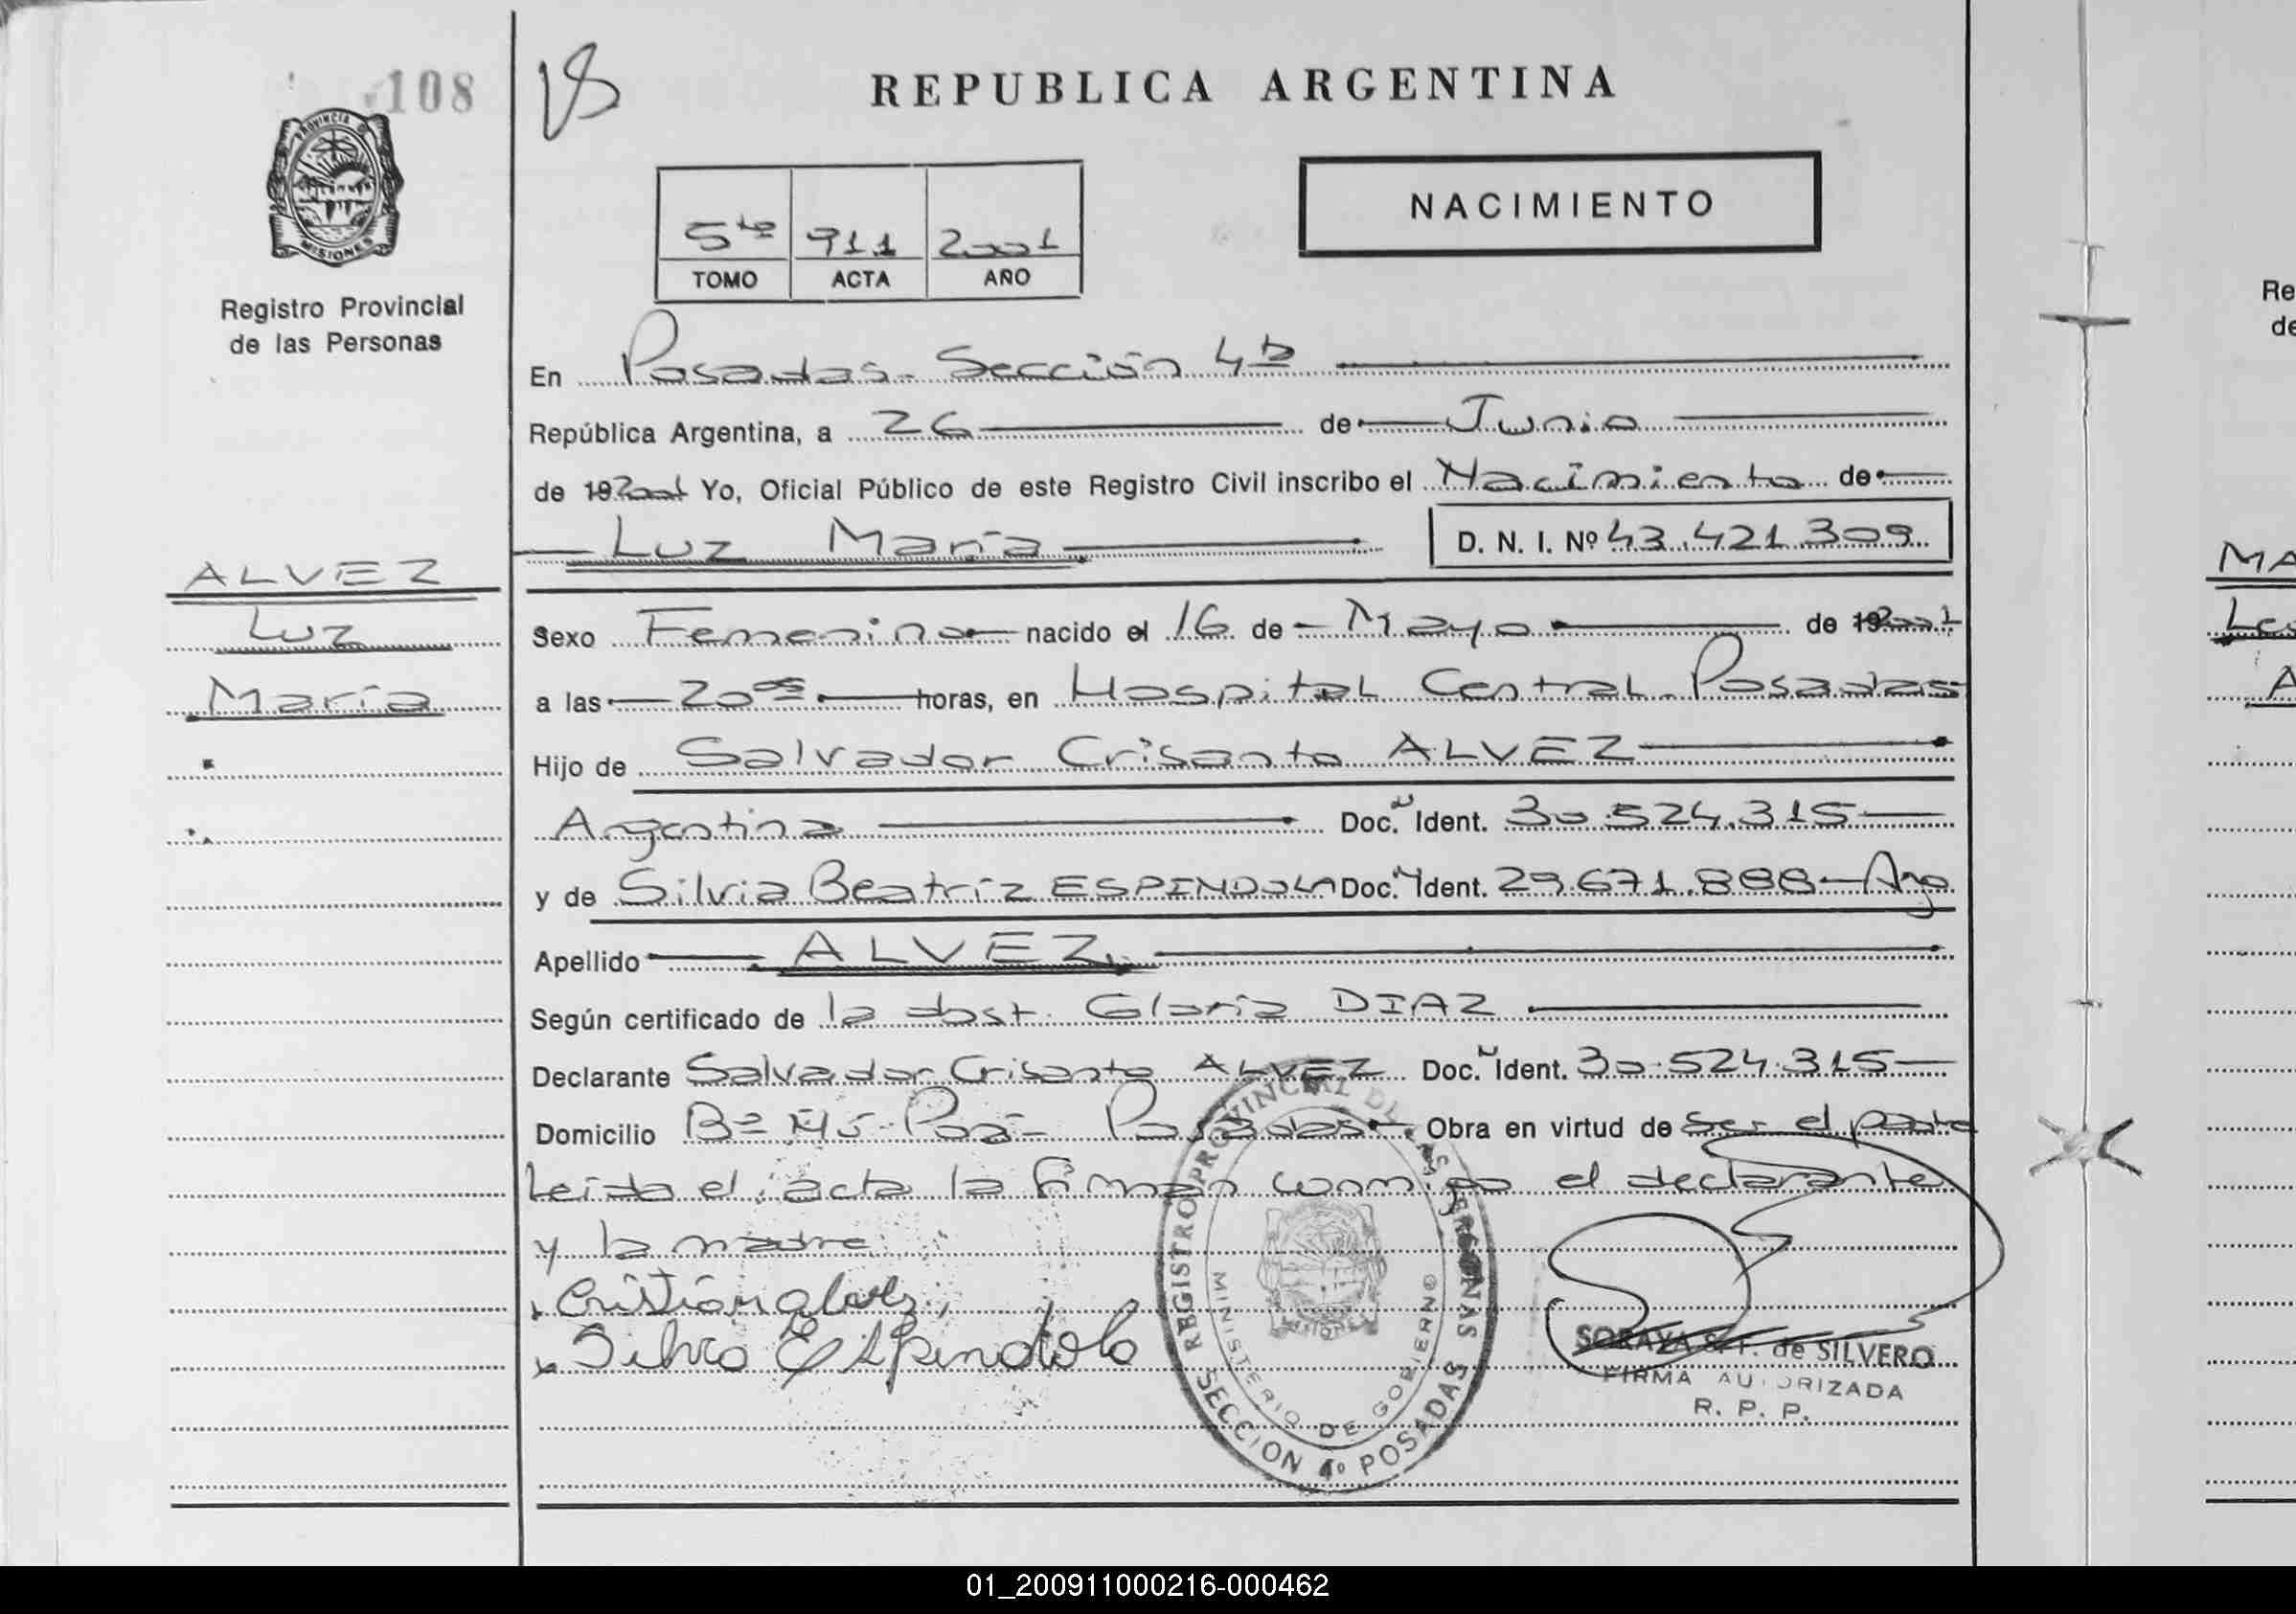 108
REPUBLICA ARGENTINA
PROVINCIA DE
MISIONES
Registro Provincial
de las Personas
NACIMIENTO
5to 911 2001
TOMO ACTA AÑO
En Posadas - Sección 4ta
República Argentina, a 26 de Junio
de 19 2001 Yo, Oficial Público de este Registro Civil inscribo el Nacimiento de
Luz María D. N. I. Nº 43.421.309
ALVEZ
Luz
María
Sexo Femenino nacido el 16 de Mayo de 19 2001
a las 20 05 horas, en Hospital Central - Posadas
Hijo de Salvador Crisanto ALVEZ
Argentina Doc. Ident. 30.524.315
y de Silvia Beatriz ESPINDOLA Doc. Ident. 29.671.888 - Arg
Apellido ALVEZ
Según certificado de la obst. Gloria DIAZ
Declarante Salvador Crisanto ALVEZ Doc. Ident. 30.524.315
Domicilio Bº Posadas Obra en virtud de ser el padre
Leída el acta la firman conmigo el declarante
y la madre
Silvia Espindola
REGISTRO PROVINCIAL DE LAS PERSONAS
MINISTERIO DE GOBIERNO
MISIONES
SECCION 4º POSADAS
SORAYA S. F. de SILVERO
FIRMA AUTORIZADA
R. P. P.
Re
de
MA
A
01_200911000216-000462